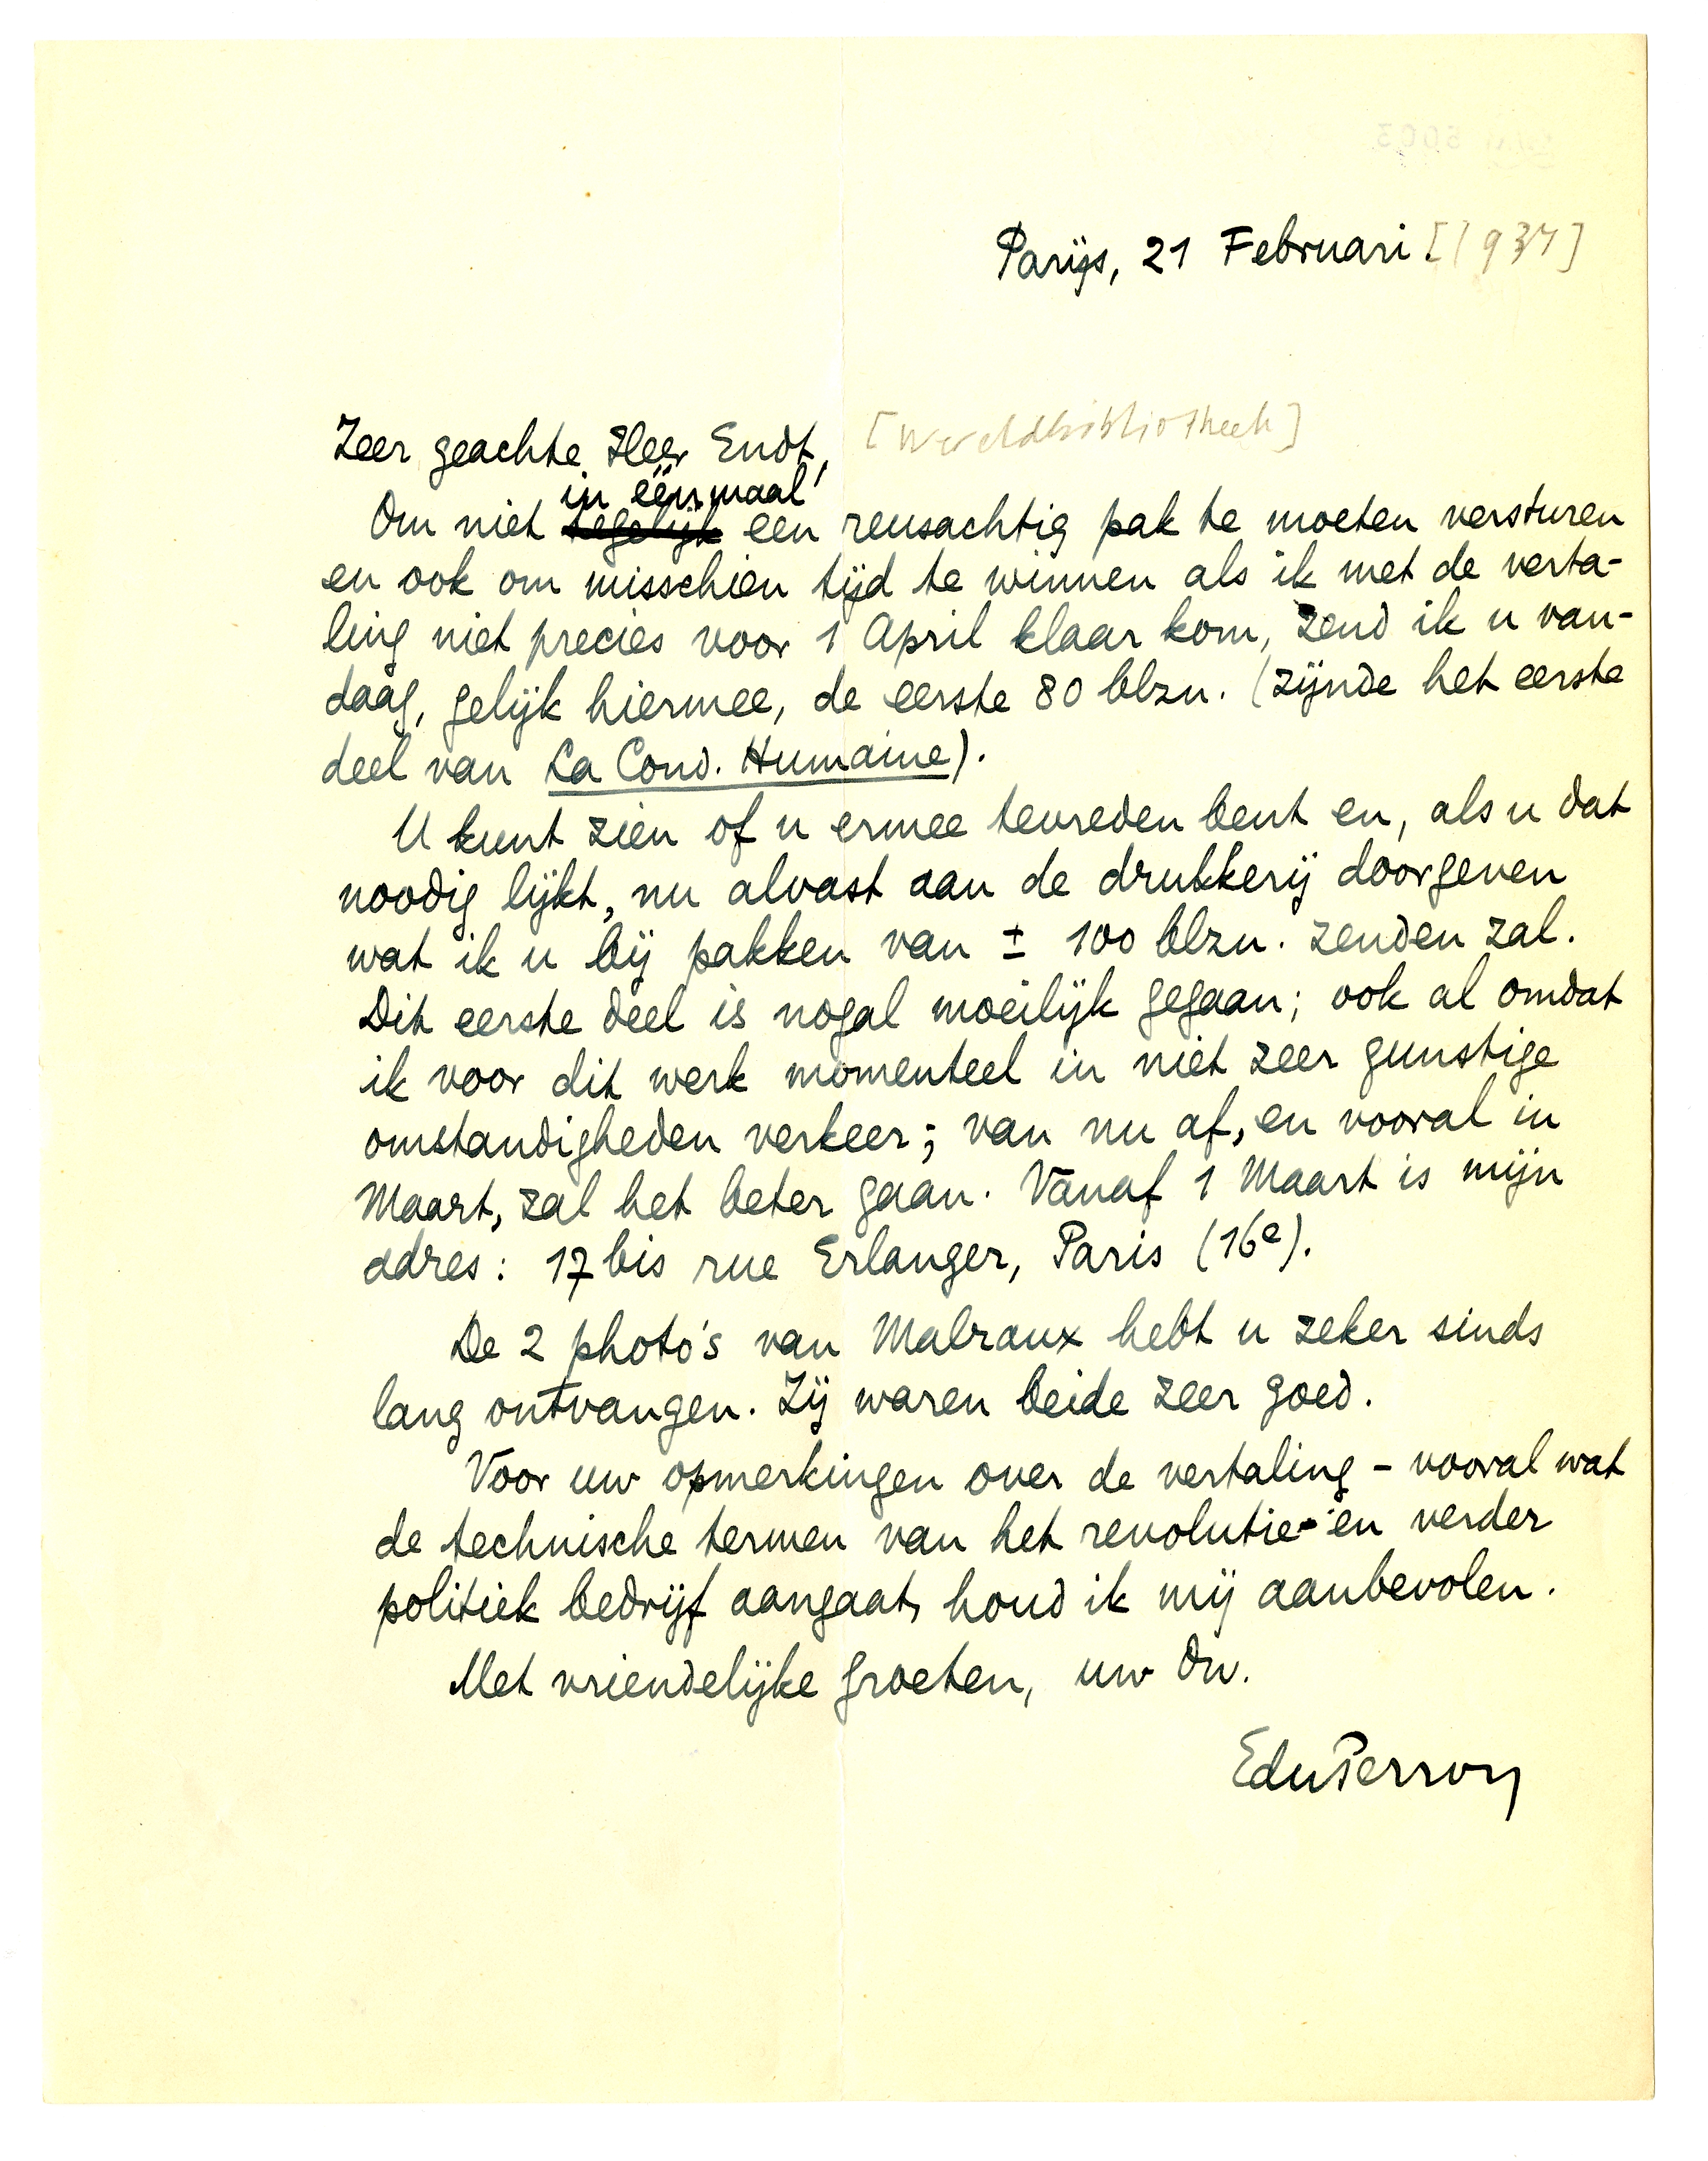 Parijs, 21 Februari [1934]
Zeer geachte Heer Endt, [Wereldbibliotheek]
in éénmaal
Om niet tegelijk een reusachtig pak te moeten versturen
en ook om misschien tijd te winnen als ik met de verta-
ling niet precies voor 1 April klaar kom, zend ik u van-
daag, gelijk hiermee, de eerste 80 blzn. (zijnde het eerste
deel van La Cond. Humaine).
U kunt zien of u ermee tevreden bent en, als u dat
noodig lijkt, nu alvast aan de drukkerij doorgeven
wat ik u bij pakken van ± 100 blzn. zenden zal.
Dit eerste deel is nogal moeilijk gegaan; ook al omdat
ik voor dit werk momenteel in niet zeer gunstige
omstandigheden verkeer; van nu af, en vooral in
Maart, zal het beter gaan. Vanaf 1 Maart is mijn
adres: 17 bis rue Erlanger, Paris (16e).
De 2 photo's van Malraux hebt u zeker sinds
lang ontvangen. Zij waren beide zeer goed.
Voor uw opmerkingen over de vertaling - vooral wat
de technische termen van het revolutie- en verder
politiek bedrijf aangaat, houd ik mij aanbevolen.
Met vriendelijke groeten, uw dw.
EduPerron